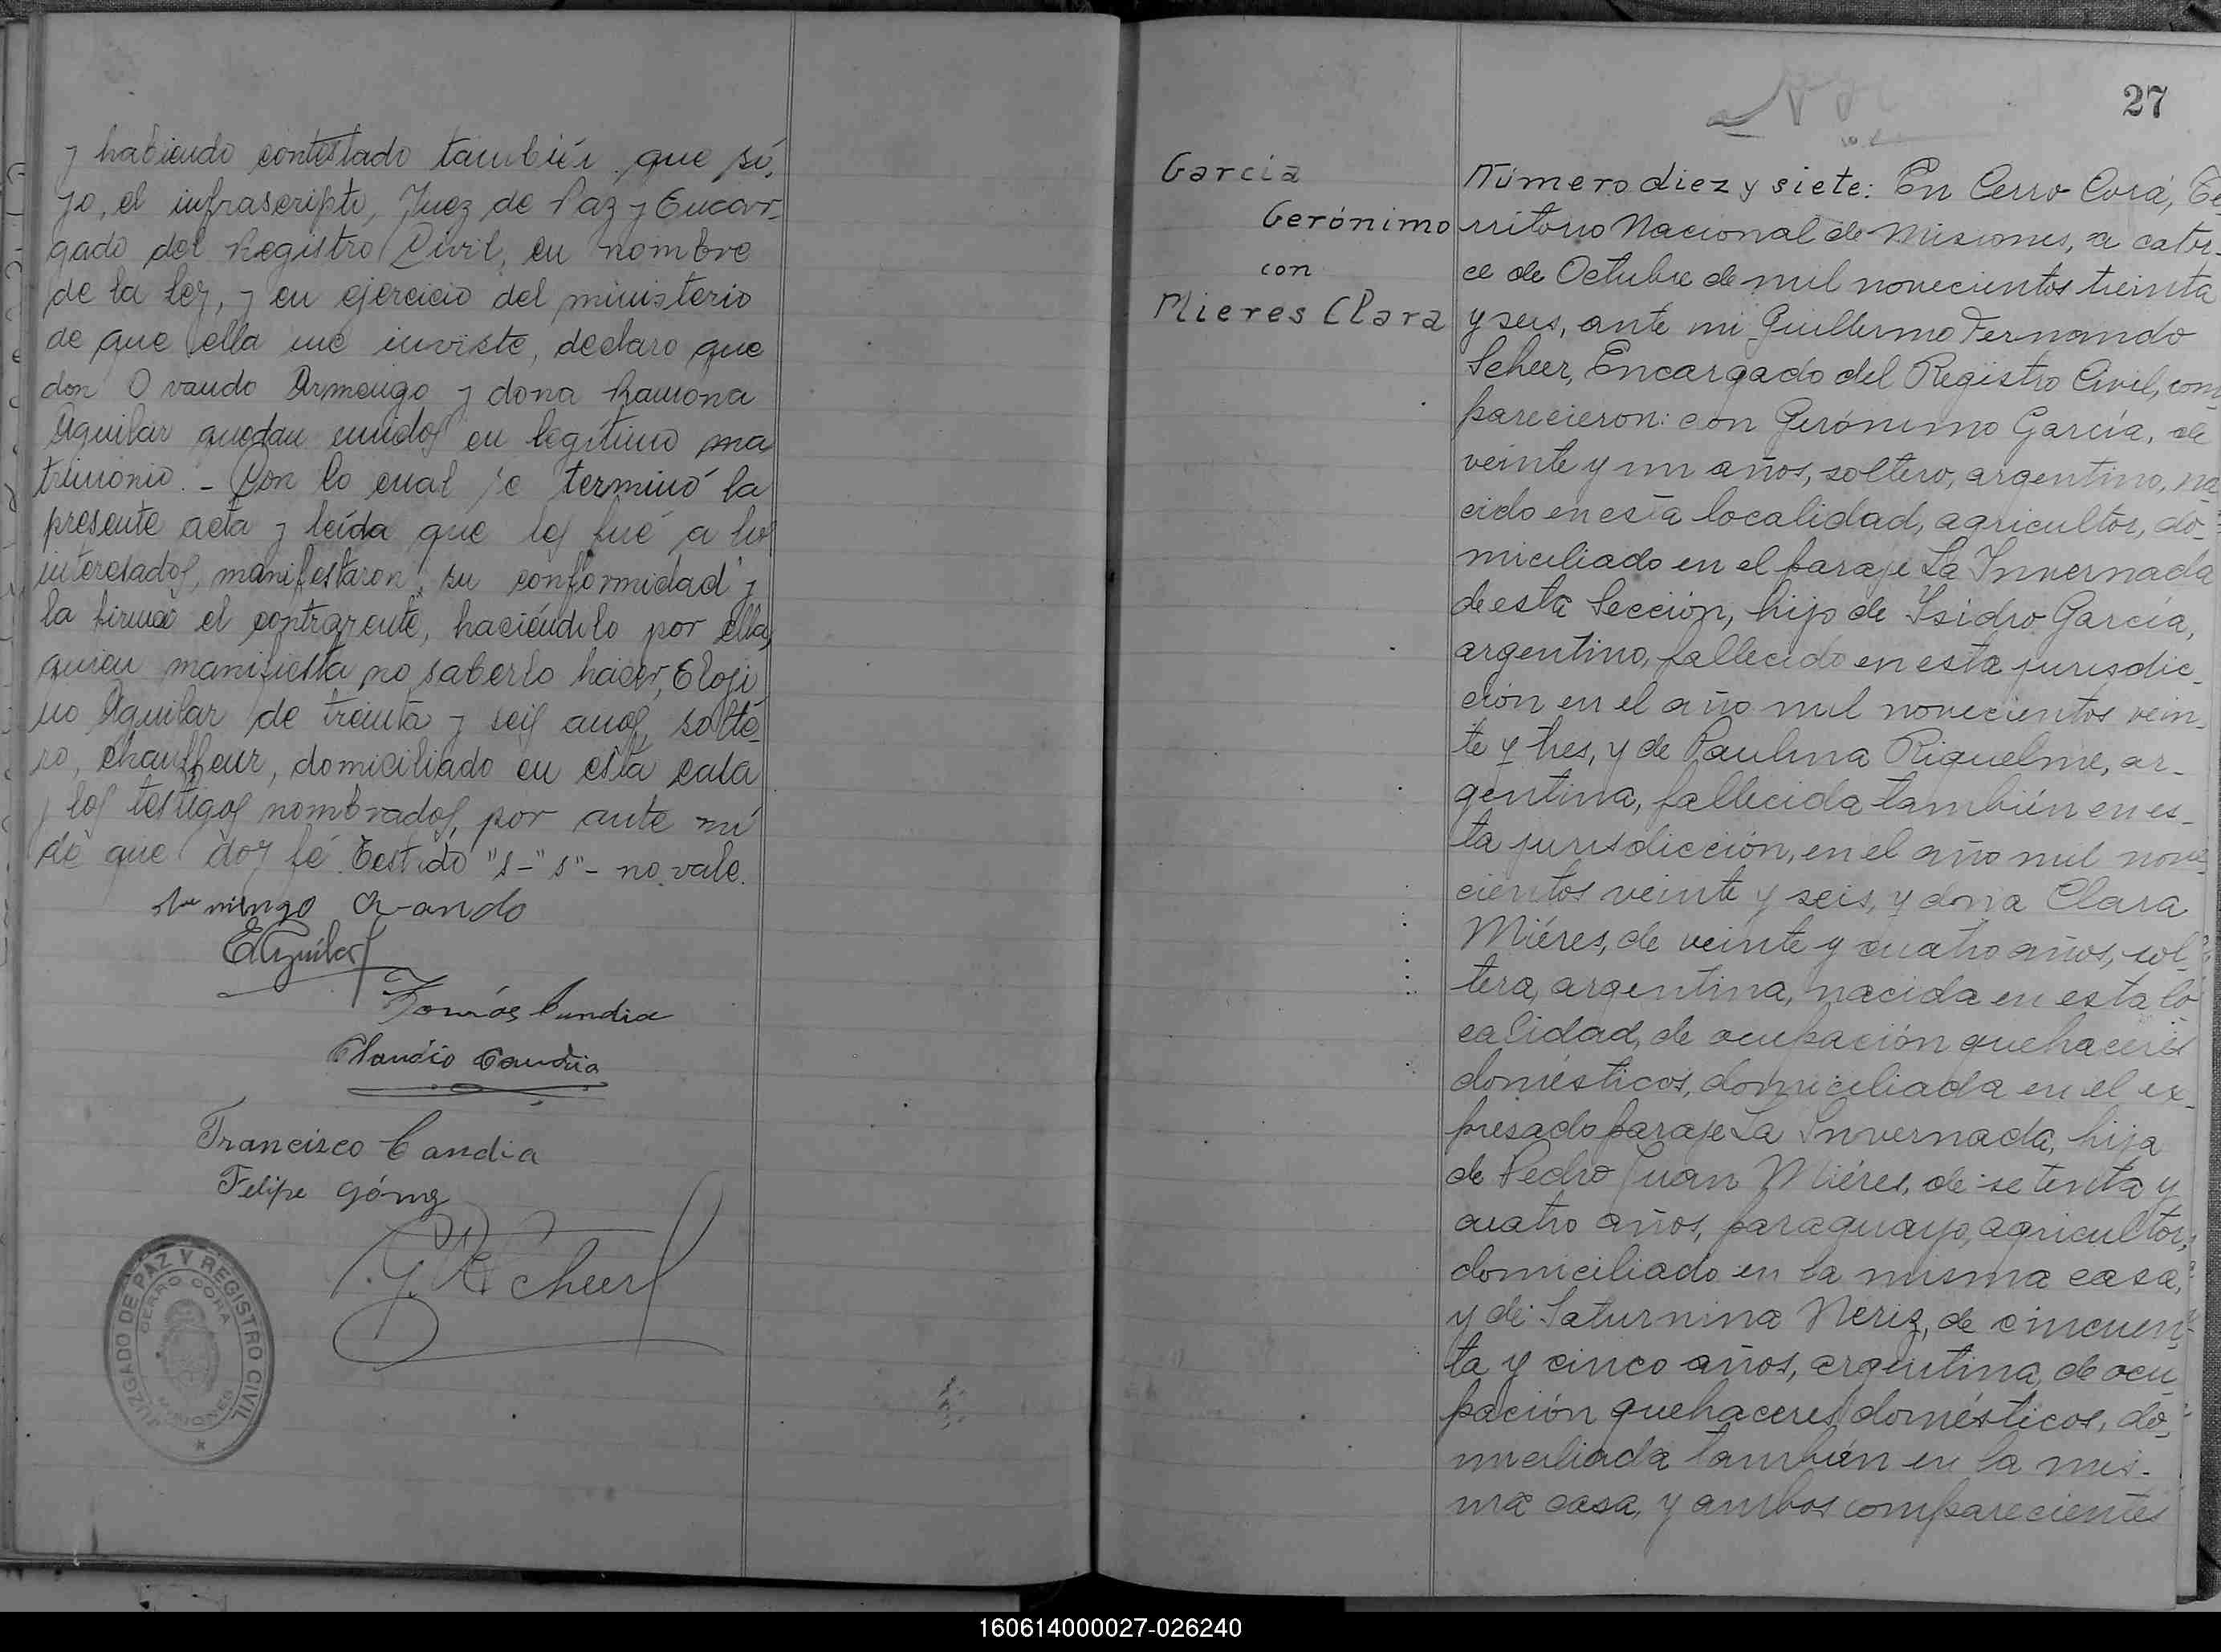 y habiendo contestado también que sí,
yo, el infrascripto, Juez de Paz y Encar-
gado del Registro Civil, en nombre
de la ley, y en ejercicio del ministerio
de que ella me inviste, declaro que
don Ovando Armengo y dona Ramona
Aguilar quedan unidos en legítimo ma
trimonio. - Con lo cual se terminó la
presente acta y leída que les fué a los
interesados, manifestaron su conformidad y
la firmó el contrayente, haciéndolo por ella,
quien manifiesta no saberlo hacer, Eloji
no Aguilar de treinta y seis anos, solte-
ro, chauffeur, domiciliado en esta casa
y los testigos nombrados, por ante mí
de que doy fé. Testido "s-"s"- no vale.
Ovando
EAguilar
Tomás Candia
Claudio Candia
Francisco Candia
Felipe Gómez
G. F. Scheer
JUZGADO DE PAZ Y REGISTRO CIVIL
CERRO CORA
MISIONES
27
García
Gerónimo
con
Mieres Clara
Número diez y siete: En Cerro Corá, Te-
rritorio Nacional de Misiones, a cator-
ce de Octubre de mil novecientos treinta
y seis, ante mi Guillermo Fernando
Scheer, Encargado del Registro Civil, com
parecieron: don Gerónimo García, de
veinte y un años, soltero, argentino, na
cido en esta localidad, agricultor, do-
miciliado en el paraje La Invernada
de esta Sección, hijo de Isidro García,
argentino, fallecido en esta jurisdic-
ción en el año mil novecientos vein-
te y tres, y de Paulina Riquelme, ar-
gentina, fallecida también en es-
ta jurisdicción, en el año mil nove-
cientos veinte y seis, y dona Clara
Miéres, de veinte y cuatro años, sol-
tera, argentina, nacida en esta lo-
calidad, de ocupación quehaceres
domésticos, domiciliada en el ex-
presado paraje La Invernada, hija
de Pedro Juan Miéres, de setenta y
cuatro años, paraguayo, agricultor,
domiciliado en la misma casa,
y de Saturnina Neriz, de cincuen-
ta y cinco años, argentina, de ocu
pación quehaceres domésticos, do-
miciliada también en la mis-
ma casa, y ambos comparecientes
160614000027-026240